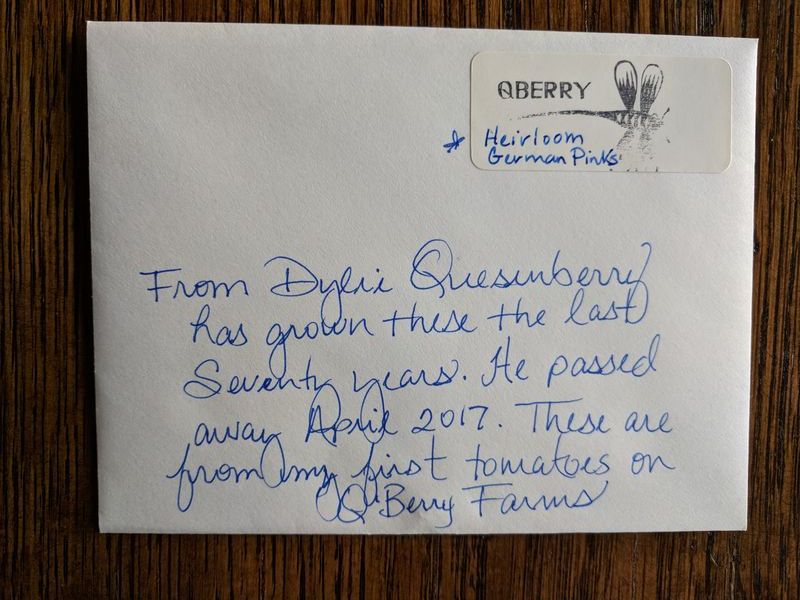 QBERRY
* Heirloom
German Pinks
From Dylie Quesenberry
has grown these the last
Seventy years. He passed
away April 2017. These are
from my first tomatoes on
QBerry Farms